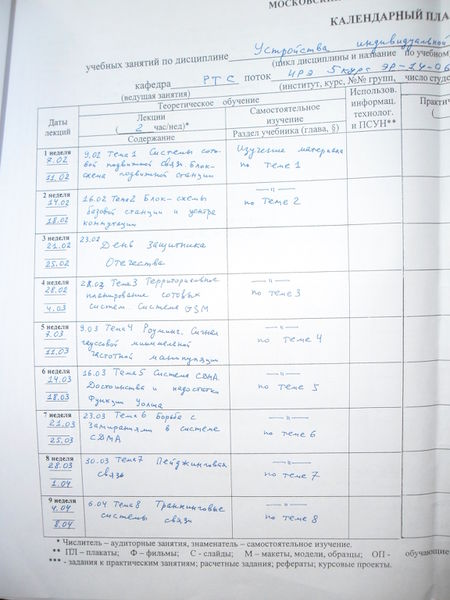 МОСКОВСКИ
КАЛЕНДАРНЫЙ ПЛА
учебных занятий по дисциплине Устройства индивидуальной
(цикл дисциплины и название по учебном
кафедра РТС поток ИРЭ 5 курс ЭР-14-06
(ведущая занятия) (институт, курс, №№ групп, число студе
Даты лекций
Теоретическое обучение
Лекции
( 2 час/нед)*
Содержание
Самостоятельное изучение
Раздел учебника (глава, §)
Использов. информац. технолог. и ПСУН**
Практи
1 неделя
7.02
11.02
9.02 Тема 1 Системы сото-
вой подвижной связи. Блок-
схема подвижной станции
Изучение материала
по Теме 1
2 неделя
14.02
18.02
16.02 Тема 2 Блок-схемы
базовой станции и центра
коммутации
— " —
по Теме 2
3 неделя
21.02
25.02
23.02
День Защитника
Отечества
4 неделя
28.02
4.03
Тема 3 Территориальное
планирование сотовых
систем. Система GSM
— " —
по теме 3
5 неделя
7.03
11.03
9.03 Тема 4 Роуминг. Сигнал
гауссовой минимальной
частотной манипуляции
— " —
по теме 4
6 неделя
14.03
18.03
16.03 Тема 5 Система CDMA.
Достоинства и недостатки
Функции Уолша
— " —
по теме 5
7 неделя
21.03
25.03
23.03 Тема 6 Борьба с
Замираниями в системе
CDMA
— " —
по теме 6
8 неделя
28.03
1.04
30.03 Тема 7 Пейджинговая
связь
— " —
по теме 7
9 неделя
4.04
8.04
6.04 Тема 8 Транкинговые
системы связи
— " —
по теме 8
* Числитель – аудиторные занятия, знаменатель – самостоятельное изучение.
** ПЛ – плакаты; Ф – фильмы; С - слайды; М – макеты, модели, образцы; ОП - обучающие
*** - задания к практическим занятиям; расчетные задания; рефераты; курсовые проекты.